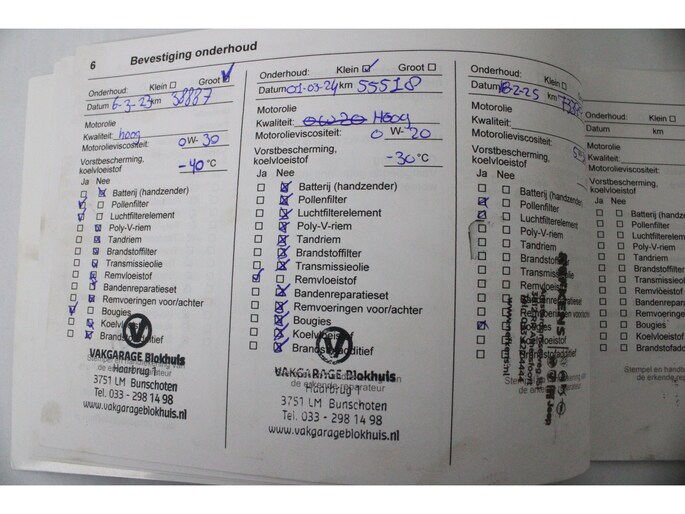 6 Bevestiging onderhoud
Onderhoud: Klein Groot
Datum 6-3-23 km 38887
Motorolie
Kwaliteit: hoog
Motorolieviscositeit: 0 W- 30
Vorstbescherming,
koelvloeistof -40 °C
Ja Nee
Batterij (handzender)
Pollenfilter
Luchtfilterelement
Poly-V-riem
Tandriem
Brandstoffilter
Transmissieolie
Remvloeistof
Bandenreparatieset
Remvoeringen voor/achter
Bougies
Koelvloeistof
Brandstofadditief
VAKGARAGE Blokhuis
Haarbrug 1
3751 LM Bunschoten
Tel. 033 - 298 14 98
www.vakgarageblokhuis.nl
Onderhoud: Klein Groot
Datum 01-03-24 km 55518
Motorolie
Kwaliteit: 0W20 Hoog
Motorolieviscositeit: 0 W- 20
Vorstbescherming,
koelvloeistof -30 °C
Ja Nee
Batterij (handzender)
Pollenfilter
Luchtfilterelement
Poly-V-riem
Tandriem
Brandstoffilter
Transmissieolie
Remvloeistof
Bandenreparatieset
Remvoeringen voor/achter
Bougies
Koelvloeistof
Brandstofadditief
VAKGARAGE Blokhuis
de erkende reparateur
Haarbrug 1
3751 LM Bunschoten
Tel. 033 - 298 14 98
www.vakgarageblokhuis.nl
Onderhoud: Klein
Datum 18-2-25 km
Motorolie
Kwaliteit:
Motorolieviscositeit:
Vorstbescherming,
koelvloeistof
Ja Nee
Batterij (handzender)
Pollenfilter
Luchtfilterelement
Poly-V-riem
Tandriem
Brandstoffilter
Transmissieolie
Remvloeistof
Bandenreparatieset
Bougies
Koelvloeistof
Brandstofadditief
Jeep
Onderhoud: Klein
Datum km
Motorolie
Kwaliteit:
Motorolieviscositeit:
Vorstbescherming,
koelvloeistof
Ja Nee
Batterij (handzender)
Pollenfilter
Luchtfilterelement
Poly-V-riem
Tandriem
Brandstoffilter
Transmissieolie
Remvloeistof
Bandenreparatieset
Remvoeringen voor/achter
Bougies
Koelvloeistof
Brandstofadd
Stempel en handt
de erkende rep